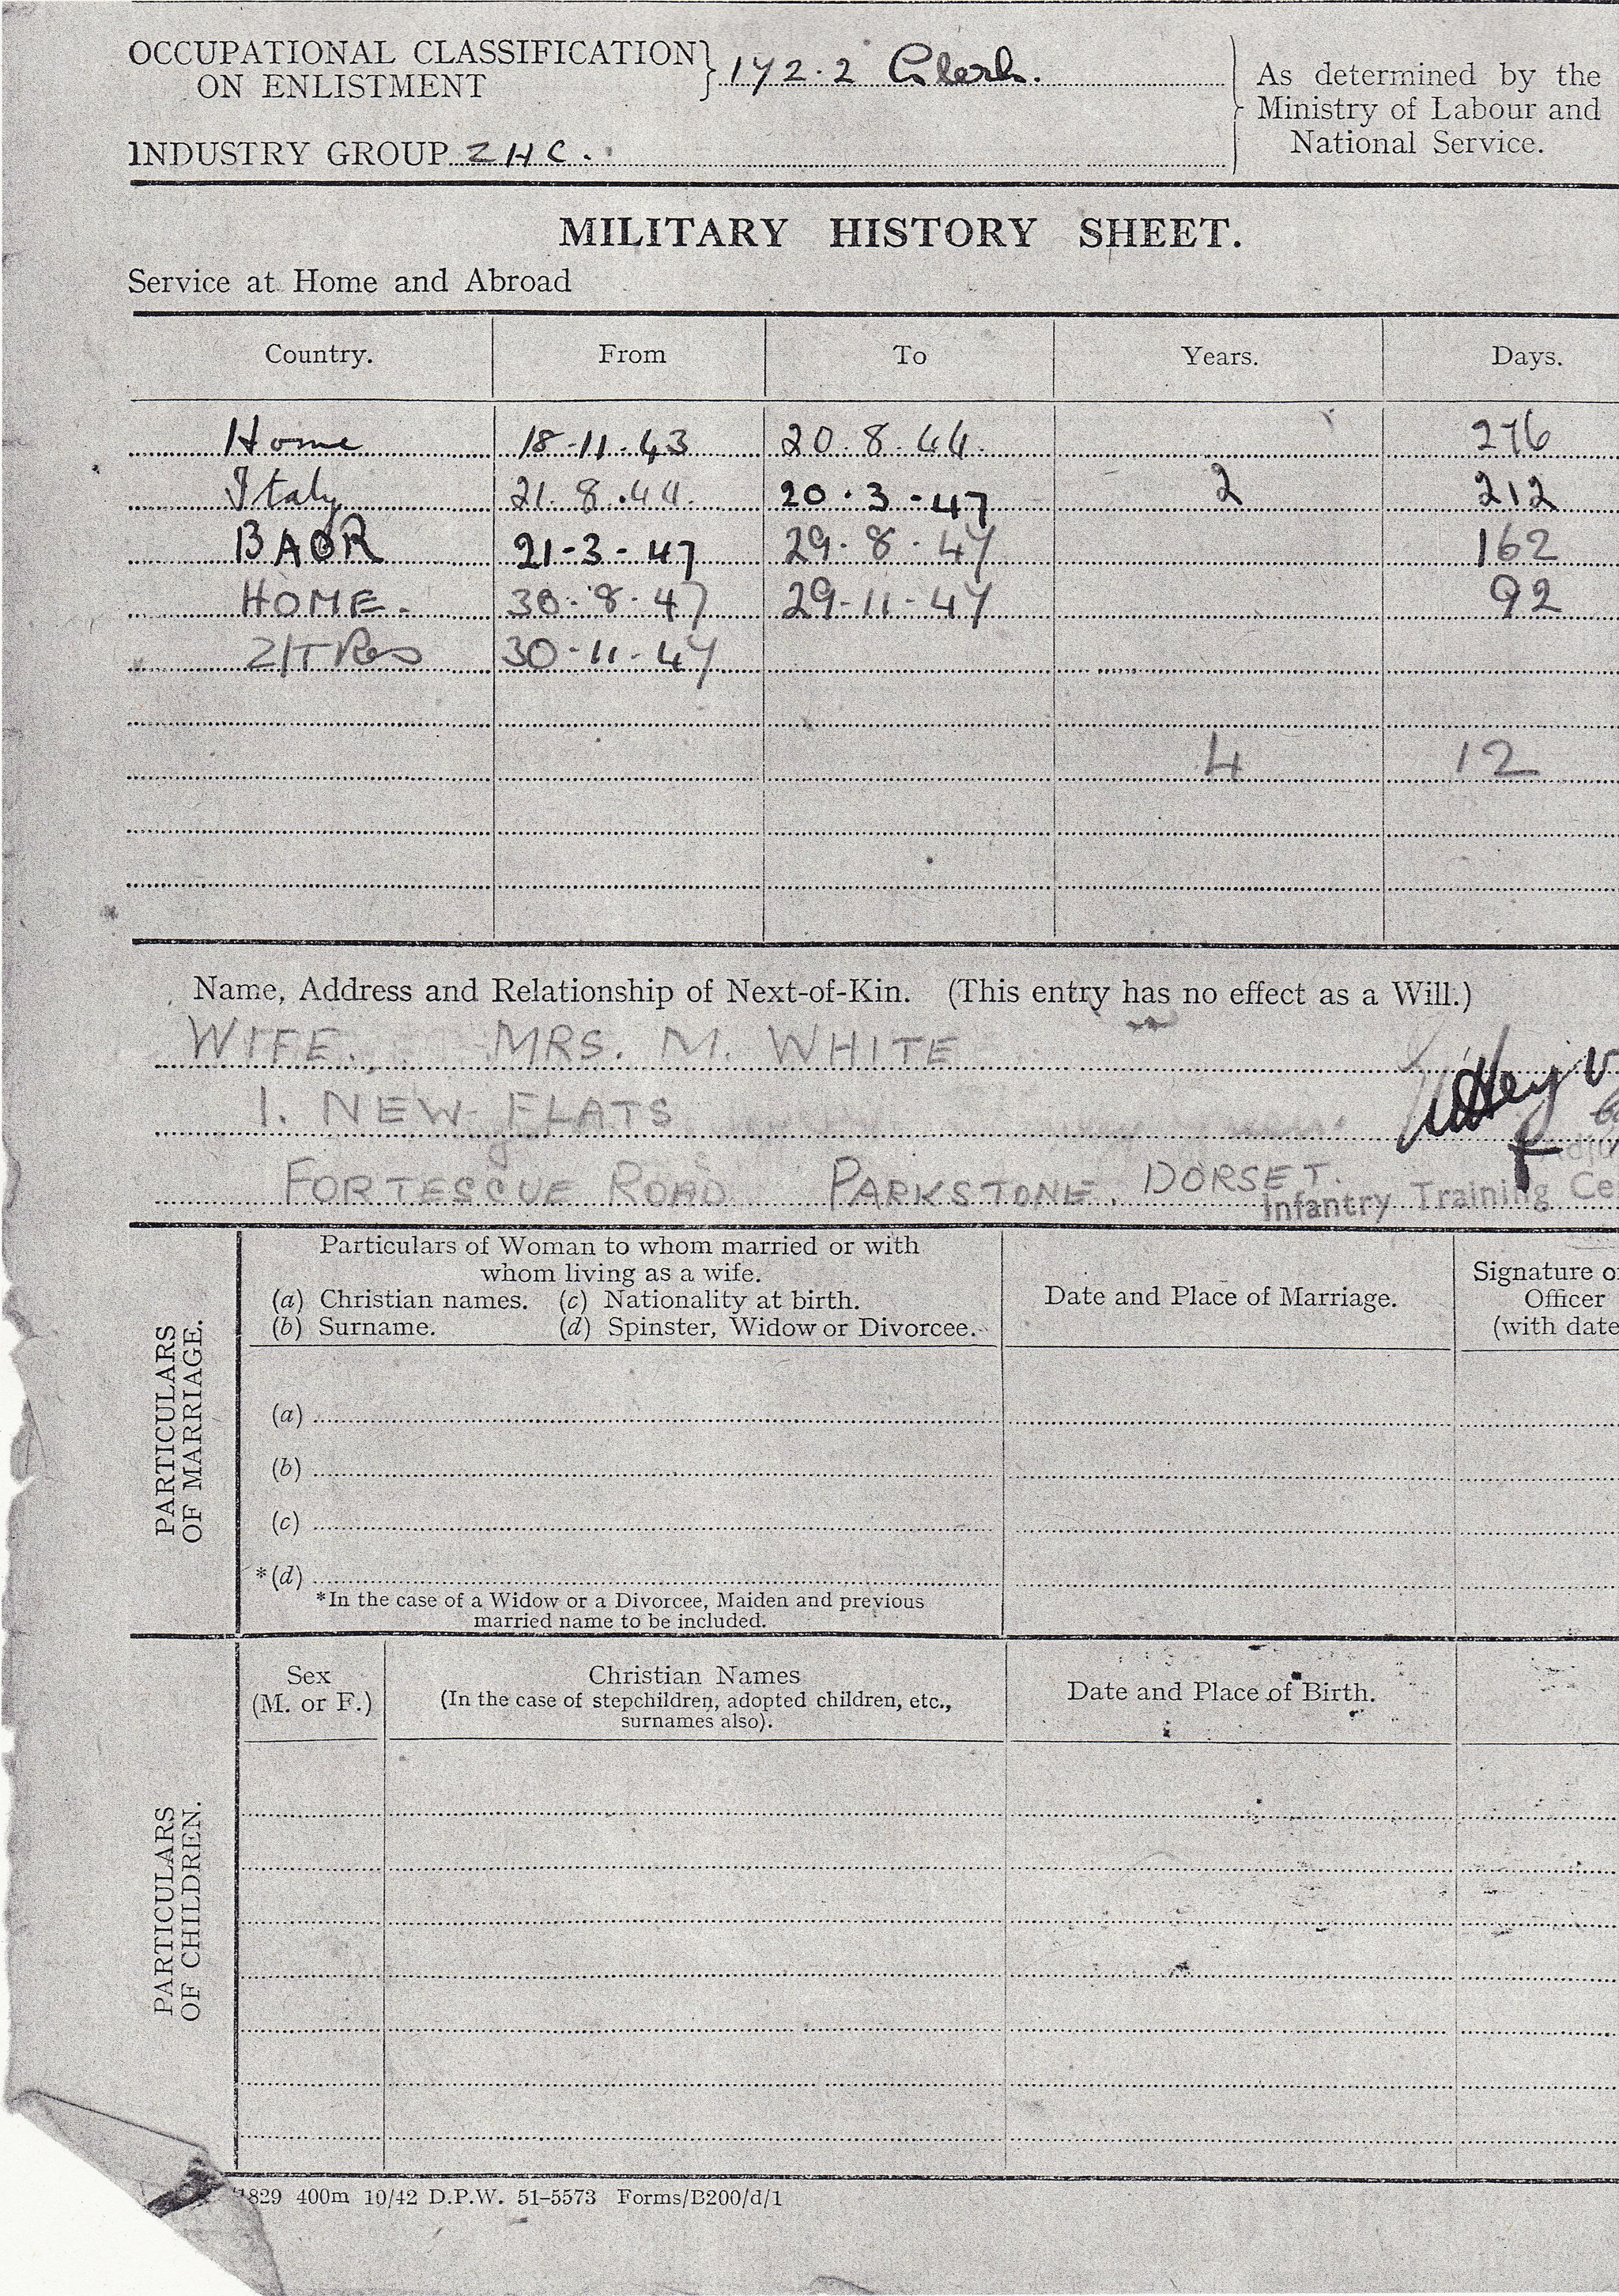 OCCUPATIONAL CLASSIFICATION
ON ENLISTMENT
172.2 Clerk.
As determined by the
Ministry of Labour and
National Service.
INDUSTRY GROUP ZHC.
MILITARY HISTORY SHEET.
Service at Home and Abroad
Country. From To Years. Days.
Home 18-11-43 20.8.44. 276
Italy 21.8.44. 20.3-47 2 212
BAOR 21-3-47 29-8-47 162
HOME. 30-8-47 29-11-47 92
Z/T Res 30-11-47
4 12
Name, Address and Relationship of Next-of-Kin. (This entry has no effect as a Will.)
WIFE. MRS. M. WHITE
1. NEW FLATS
FORTESCUE ROAD PARKSTONE. DORSET.
Infantry Training Ce
PARTICULARS
OF MARRIAGE.
Particulars of Woman to whom married or with
whom living as a wife.
(a) Christian names. (c) Nationality at birth.
(b) Surname. (d) Spinster, Widow or Divorcee.
Date and Place of Marriage.
Signature o
Officer
(with date
(a)
(b)
(c)
*(d)
*In the case of a Widow or a Divorcee, Maiden and previous
married name to be included.
PARTICULARS
OF CHILDREN.
Sex
(M. or F.)
Christian Names
(In the case of stepchildren, adopted children, etc.,
surnames also).
Date and Place of Birth.
1829 400m 10/42 D.P.W. 51-5573 Forms/B200/d/1